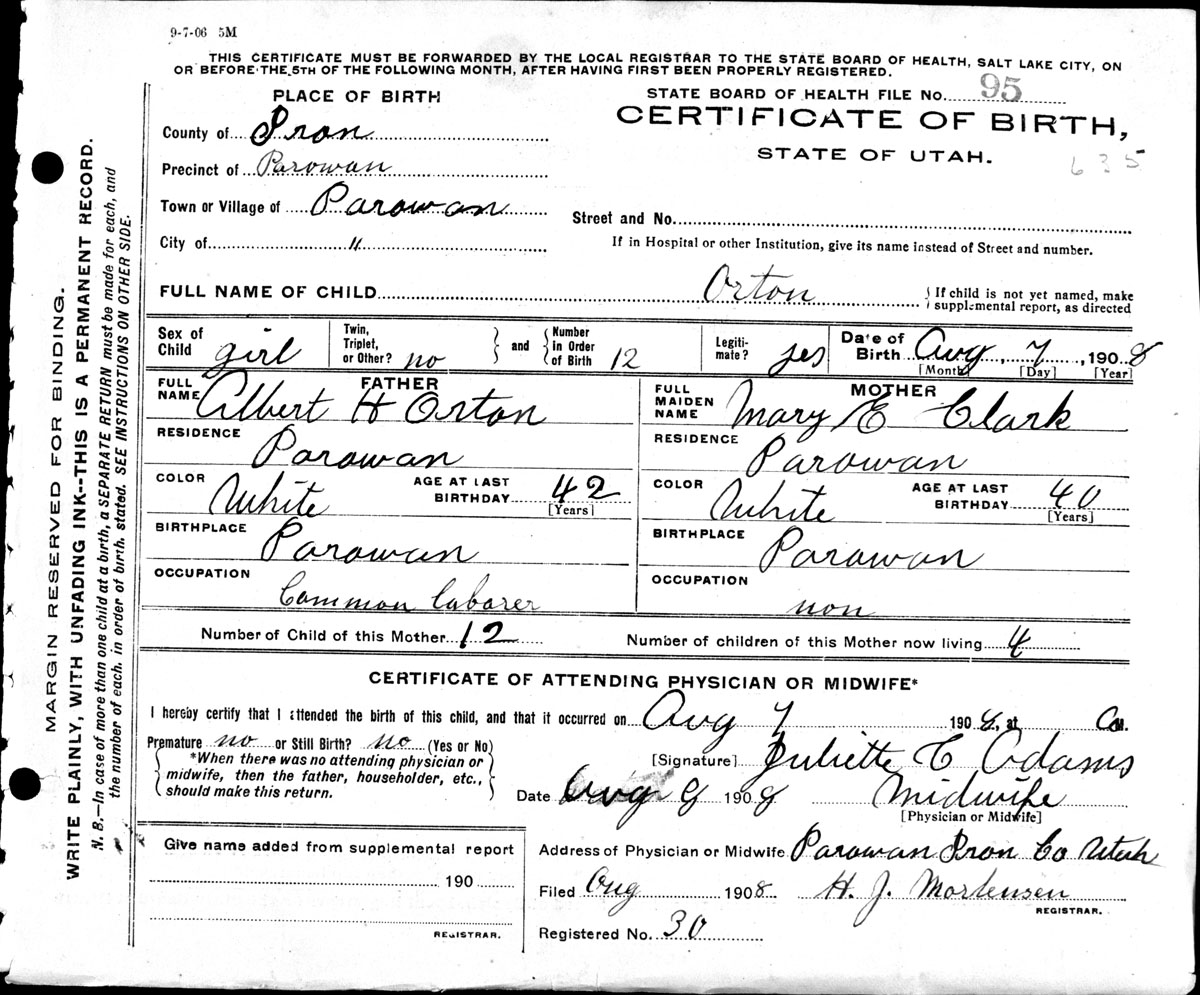 9-7-06 5M
THIS CERTIFICATE MUST BE FORWARDED BY THE LOCAL REGISTRAR TO THE STATE BOARD OF HEALTH, SALT LAKE CITY, ON
OR BEFORE THE 5TH OF THE FOLLOWING MONTH, AFTER HAVING FIRST BEEN PROPERLY REGISTERED.
PLACE OF BIRTH
STATE BOARD OF HEALTH FILE No. 95
CERTIFICATE OF BIRTH,
STATE OF UTAH.
635
County of Iron
Precinct of Parowan
Town or Village of Parowan
Street and No.
City of "
If in Hospital or other Institution, give its name instead of Street and number.
FULL NAME OF CHILD Orton
{ If child is not yet named, make
supplemental report, as directed
Sex of Child girl
Twin, Triplet, or Other? no
and
Number in Order of Birth 12
Legitimate? yes
Date of Birth Aug 7, 1908
[Month] [Day] [Year]
FATHER
FULL NAME Albert H Orton
RESIDENCE Parowan
COLOR White
AGE AT LAST BIRTHDAY 42
[Years]
BIRTHPLACE Parowan
OCCUPATION Common laborer
MOTHER
FULL MAIDEN NAME Mary E Clark
RESIDENCE Parowan
COLOR White
AGE AT LAST BIRTHDAY 40
[Years]
BIRTHPLACE Parowan
OCCUPATION non
Number of Child of this Mother 12
Number of children of this Mother now living 4
CERTIFICATE OF ATTENDING PHYSICIAN OR MIDWIFE*
I hereby certify that I attended the birth of this child, and that it occurred on Aug 7 1908, at M.
Premature no or Still Birth? no (Yes or No)
*When there was no attending physician or
midwife, then the father, householder, etc.,
should make this return.
[Signature] Juliette C Adams
Date Aug 9 1908 Midwife
[Physician or Midwife]
Give name added from supplemental report
190
REGISTRAR.
Address of Physician or Midwife Parowan Iron Co Utah
Filed Aug 1908 H. J. Mortensen
REGISTRAR.
Registered No. 30
MARGIN RESERVED FOR BINDING.
WRITE PLAINLY, WITH UNFADING INK--THIS IS A PERMANENT RECORD.
N. B.—In case of more than one child at a birth, a SEPARATE RETURN must be made for each, and
the number of each, in order of birth, stated. SEE INSTRUCTIONS ON OTHER SIDE.